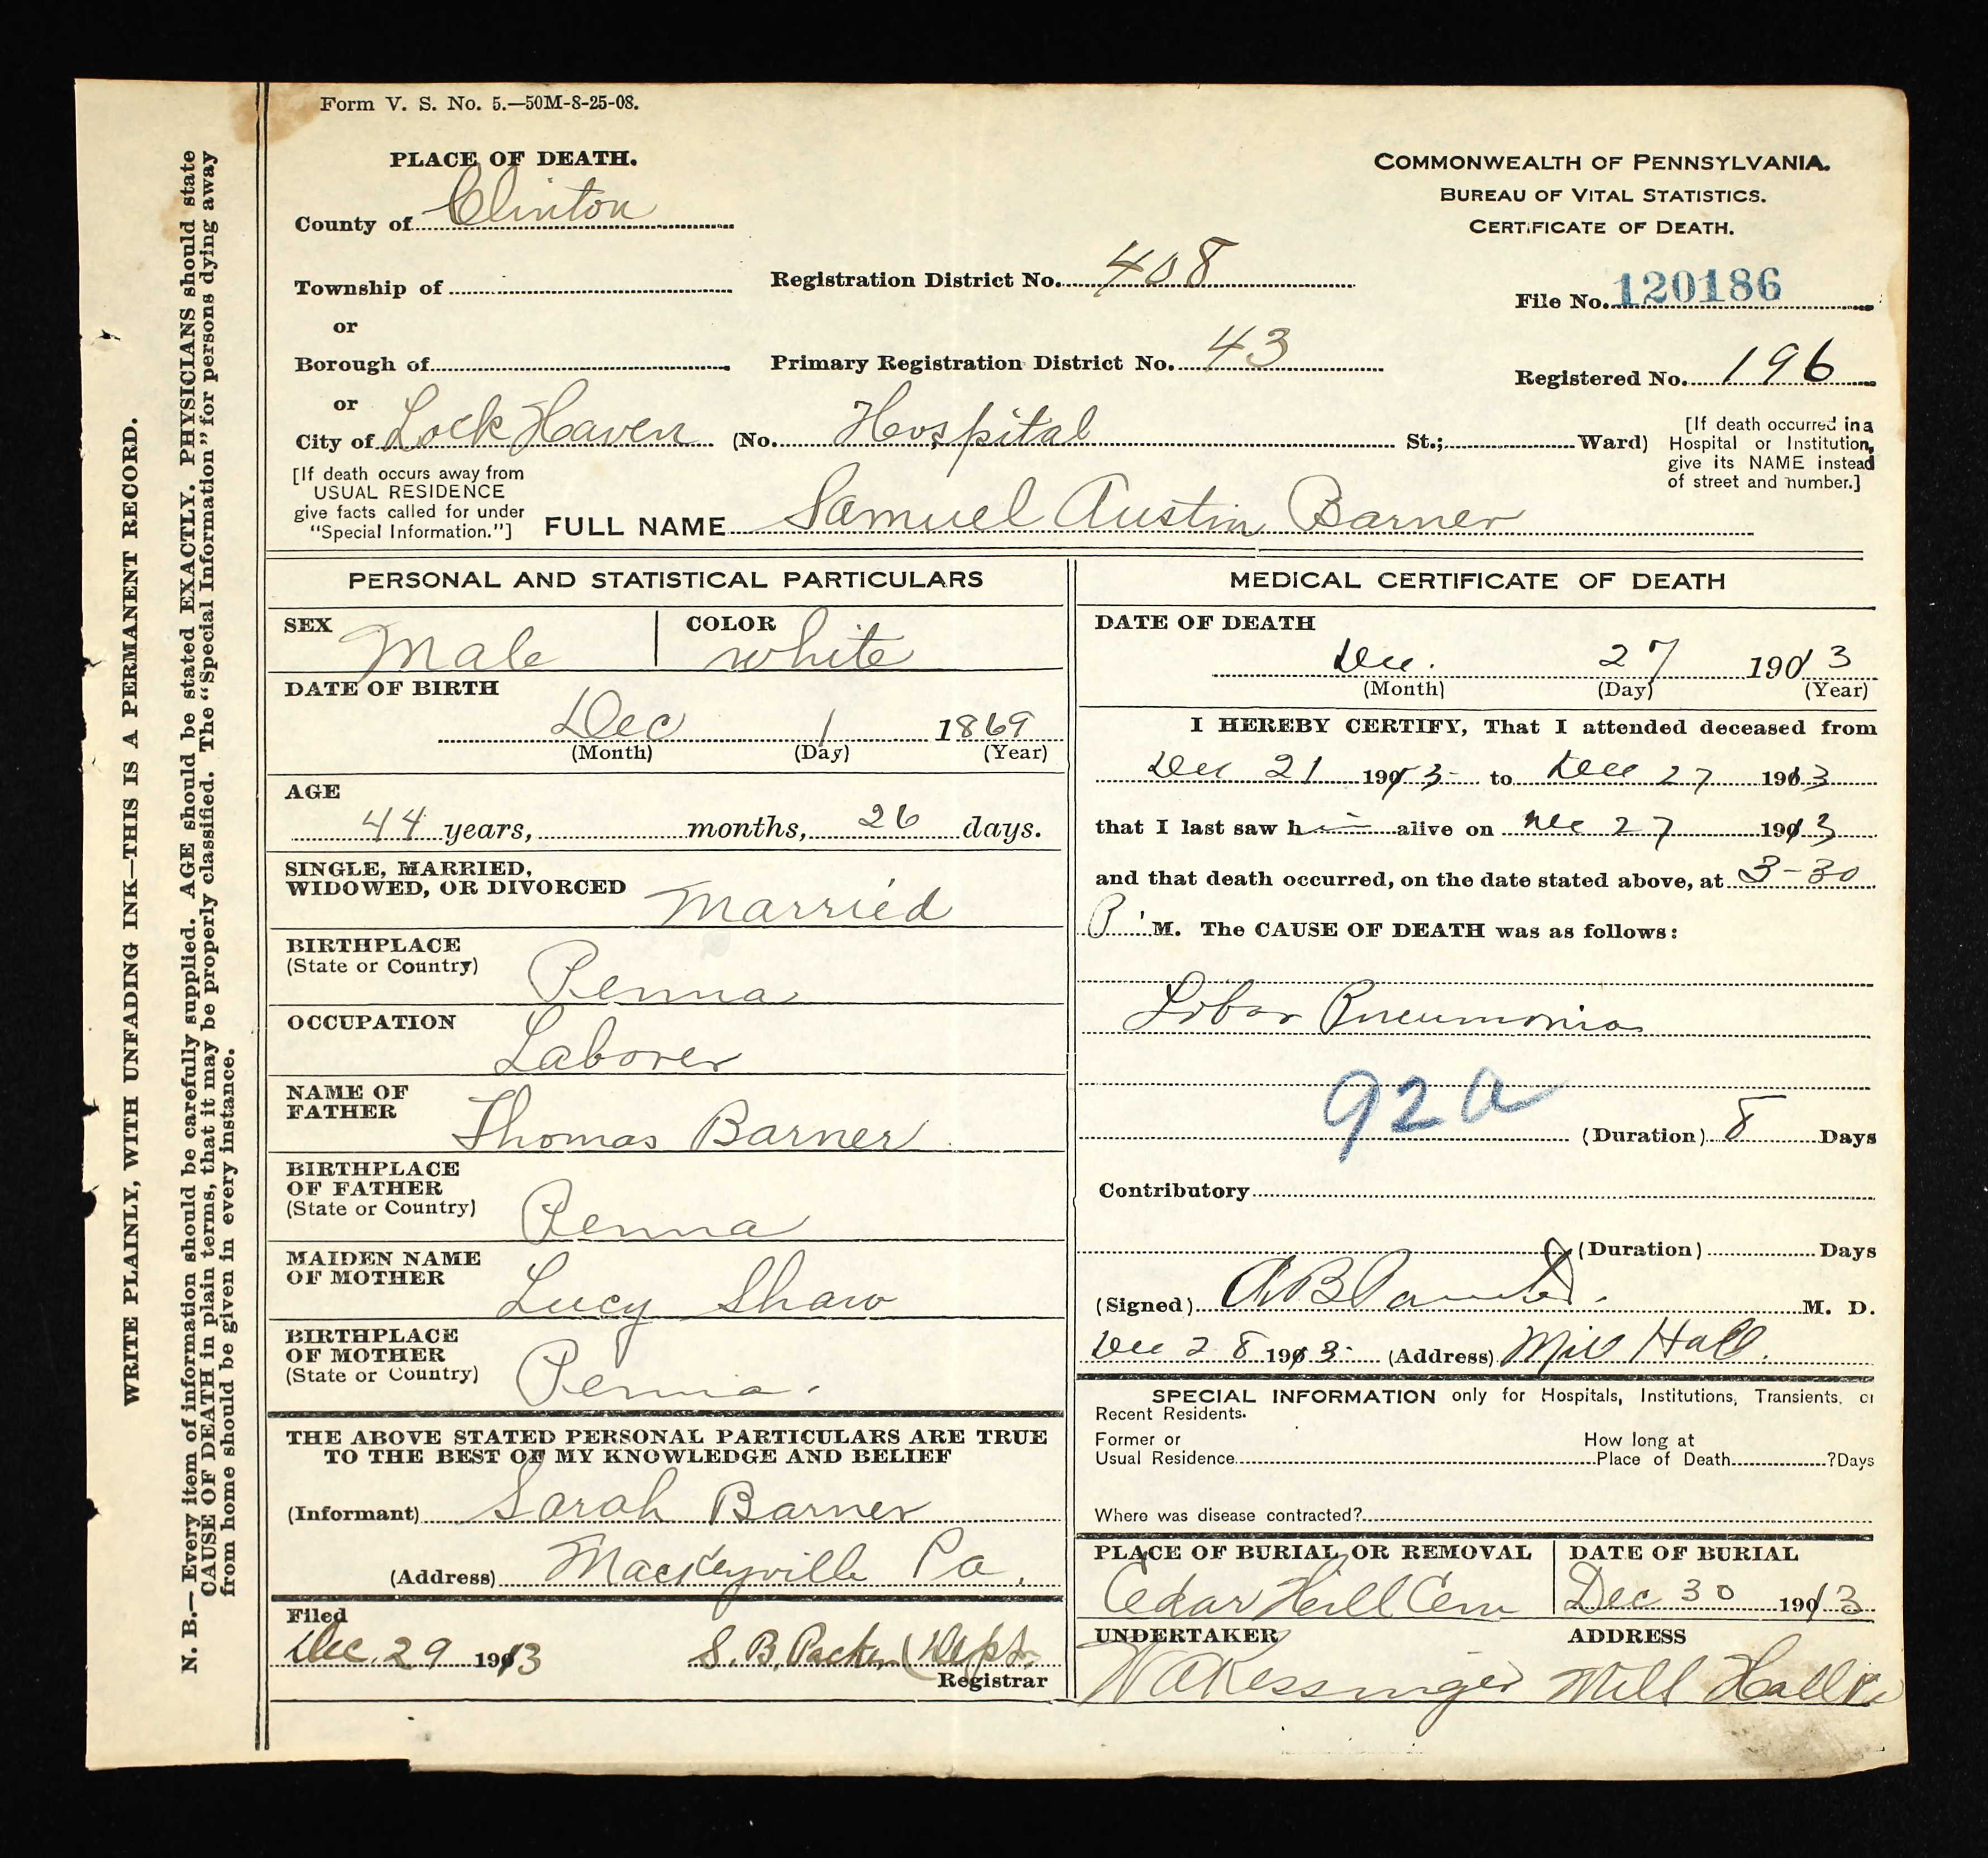 Form V. S. No. 5.—50M-8-25-08.
PLACE OF DEATH.
County of Clinton
Township of
or
Borough of
or
City of Lock Haven (No. Hospital St.; Ward)
[If death occurs away from USUAL RESIDENCE give facts called for under "Special Information."]
Registration District No. 408
Primary Registration District No. 43
COMMONWEALTH OF PENNSYLVANIA.
BUREAU OF VITAL STATISTICS.
CERTIFICATE OF DEATH.
File No. 120186
Registered No. 196
[If death occurred in a Hospital or Institution, give its NAME instead of street and number.]
FULL NAME Samuel Austin Barner
PERSONAL AND STATISTICAL PARTICULARS
SEX Male
COLOR white
DATE OF BIRTH
Dec 1 1869
(Month) (Day) (Year)
AGE
44 years, months, 26 days.
SINGLE, MARRIED,
WIDOWED, OR DIVORCED Married
BIRTHPLACE
(State or Country) Penna
OCCUPATION
Laborer
NAME OF
FATHER Thomas Barner
BIRTHPLACE
OF FATHER
(State or Country) Penna
MAIDEN NAME
OF MOTHER Lucy Shaw
BIRTHPLACE
OF MOTHER
(State or Country) Penna.
THE ABOVE STATED PERSONAL PARTICULARS ARE TRUE
TO THE BEST OF MY KNOWLEDGE AND BELIEF
(Informant) Sarah Barner
(Address) Mackeyville Pa.
Filed
Dec. 29 1913 S. B. Packer (Dept.
Registrar
MEDICAL CERTIFICATE OF DEATH
DATE OF DEATH
Dec. 27 1913
(Month) (Day) (Year)
I HEREBY CERTIFY, That I attended deceased from
Dec 21 1913 to Dec 27 1913
that I last saw h alive on Dec 27 1913
and that death occurred, on the date stated above, at 3-30
P. M. The CAUSE OF DEATH was as follows:
Lobar Pneumonia
92a
(Duration) 8 Days
Contributory
(Duration) Days
(Signed) M. D.
Dec 28 1913 (Address) Mill Hall.
SPECIAL INFORMATION only for Hospitals, Institutions, Transients, or
Recent Residents.
Former or
Usual Residence
How long at
Place of Death ?Days
Where was disease contracted?
PLACE OF BURIAL OR REMOVAL
Cedar Hill Cem
DATE OF BURIAL
Dec 30 1913
UNDERTAKER
W A Kessinger
ADDRESS
Mill Hall Pa
WRITE PLAINLY, WITH UNFADING INK—THIS IS A PERMANENT RECORD.
N. B.—Every item of information should be carefully supplied. AGE should be stated EXACTLY. PHYSICIANS should state
CAUSE OF DEATH in plain terms, that it may be properly classified. The "Special Information" for persons dying away
from home should be given in every instance.